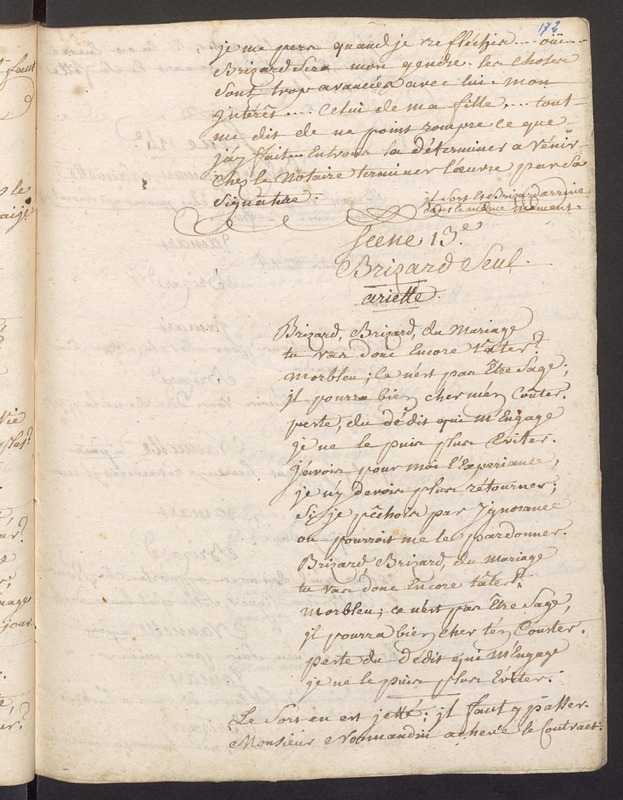 172
je me pers quand je refléchis.... oüi...
Brizard Sera mon gendre. les choses
Sont trop avancées avec lui. Mon
jntérêt.... Celui de ma fille.... tout
me dit de ne point rompre ce que
j'ay fait. Entrons la déterminer a venir
Chez le Notaire terminer l'œuvre par Sa
Signature.
jl Sort Et Brizard arrive
dans le même moment.
Scene 13.e
Brizard Seul.
ariette.
Brizard, Brizard, du Mariage
tu vas donc Encore tâter?
Morbleu; Ce n'est pas Être Sage.
jl pourra bien cher m'en Coûter.
peste, du dédit qui M'Engage
je ne le puis plus Éviter.
j'avois pour moi l'Experiance,
je n'y devois plus rétourner;
Si je péchois par jgnorance
on pourroit me le pardonner.
Brizard, Brizard, du Mariage
tu vas donc Encore tâter?
Morbleu; ce n'est pas Être Sage,
jl pourra bien cher t'en Couster.
peste du dédit qui M'Engage
je ne le puis plus Éviter.
Le Sort en est jetté; jl faut y passer.
Monsieur Normandin acheve le Contract.